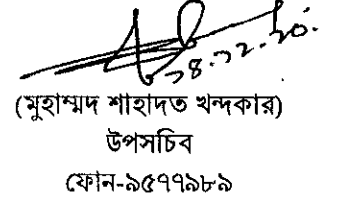 (মুহাম্মদ শাহাদত খন্দকার)
উপসচিব
ফোন-৯৫৭৭৯৮৯